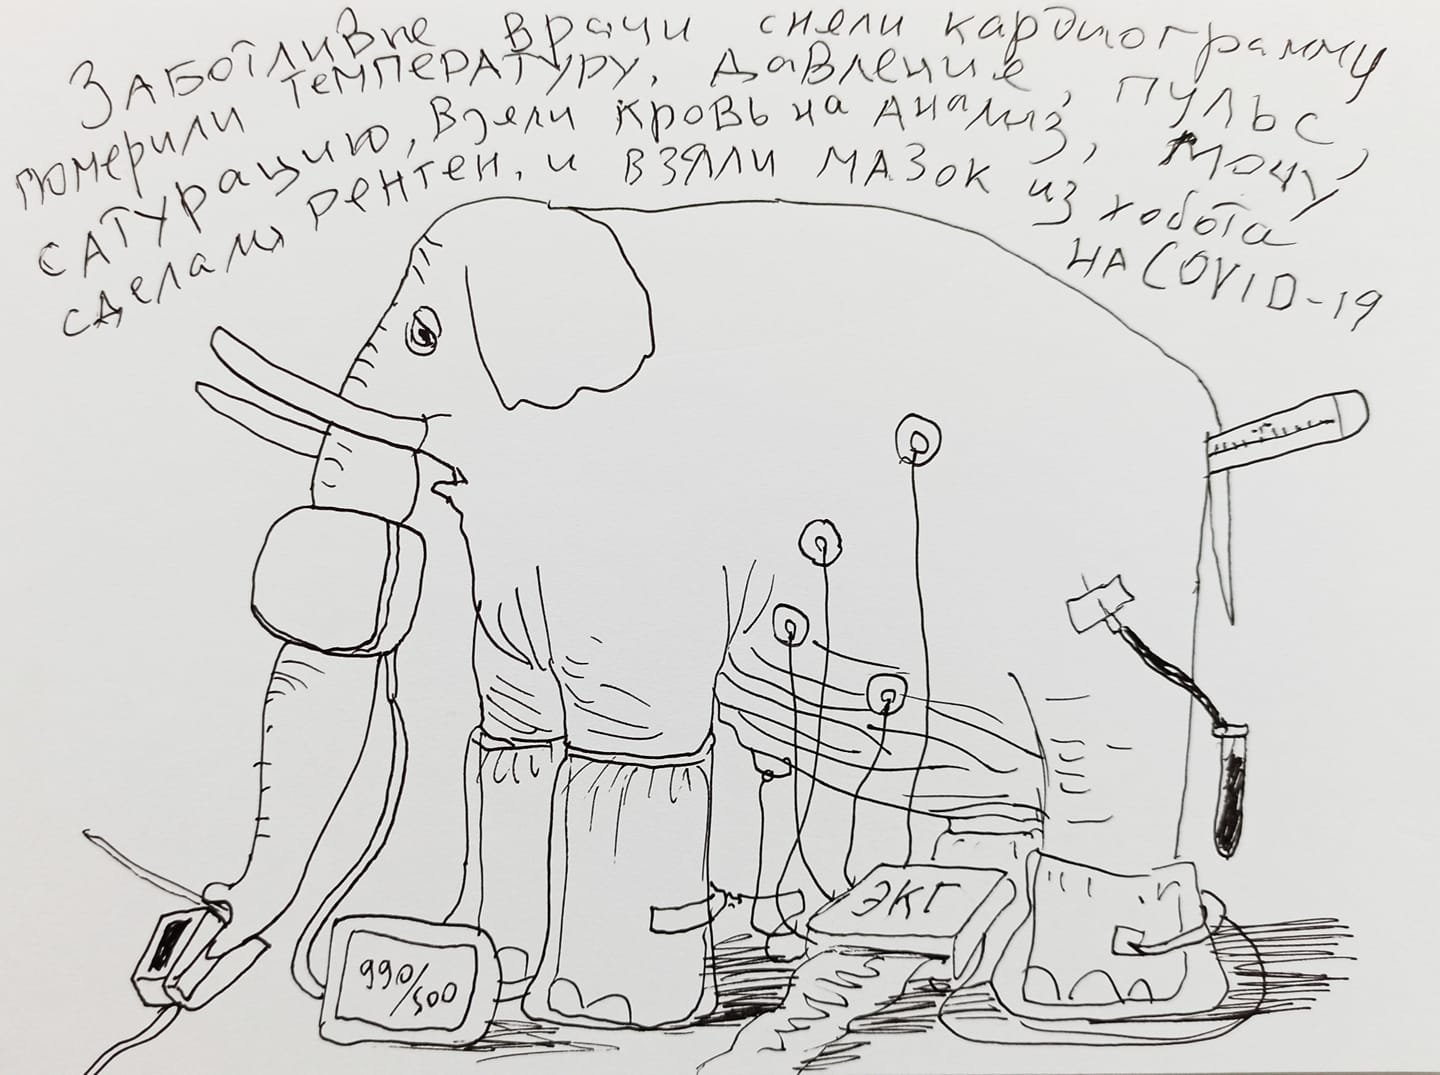 Заботливые врачи сняли кардиограмму
померили температуру, давление, пульс,
сатурацию, взяли кровь на анализ, мочу,
сделали рентген, и взяли мазок из хобота
на COVID-19
ЭКГ
990/500